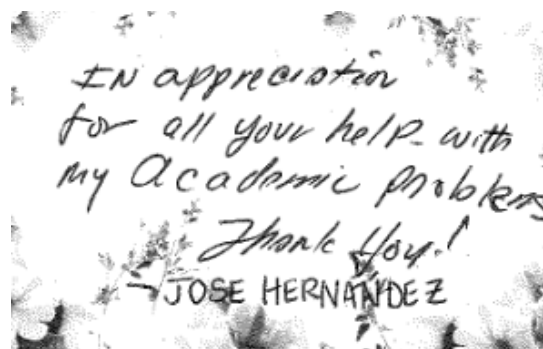 IN appreciation
for all your help - with
my Academic problems
Thank You!
- JOSE HERNANDEZ